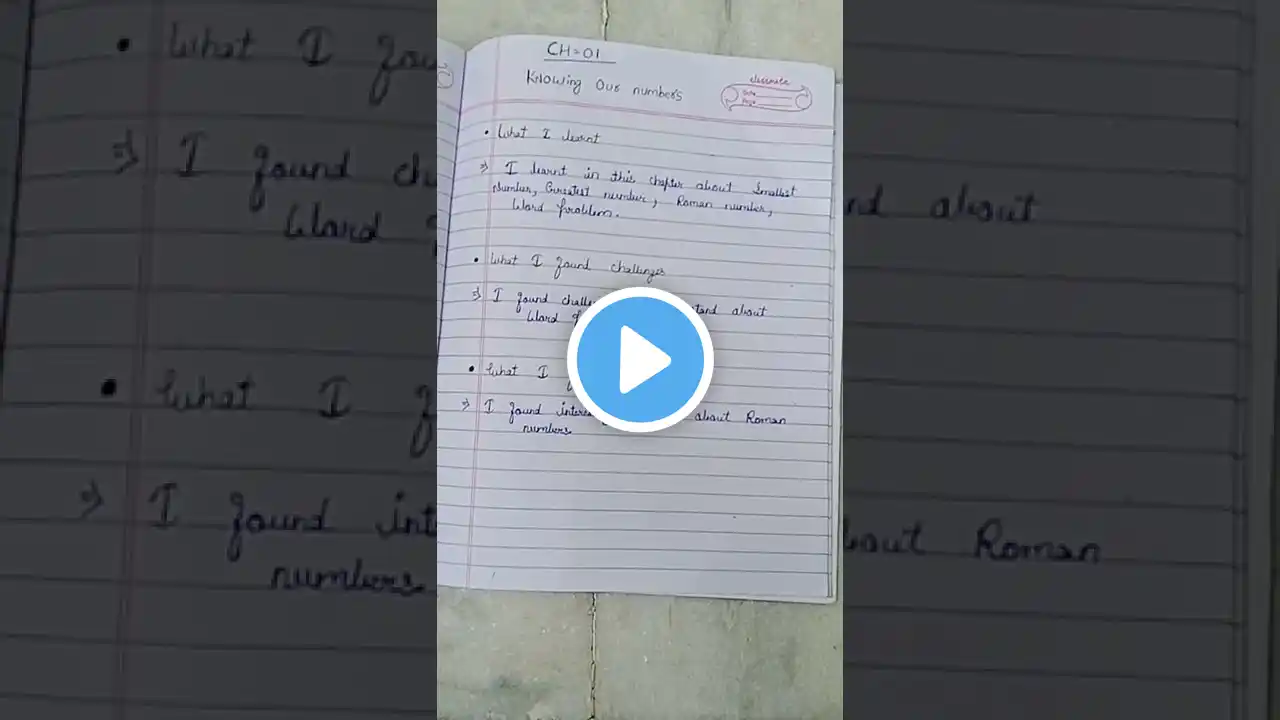 CH=01
Knowing Our numbers
classmate
Date
Page
• What I learnt
⇒ I learnt in this chapter about Smallest
number, Greatest number, Roman number,
Word Problem.
• What I found challenges
⇒ I found about
Word
• What I
⇒ I found about Roman
numbers